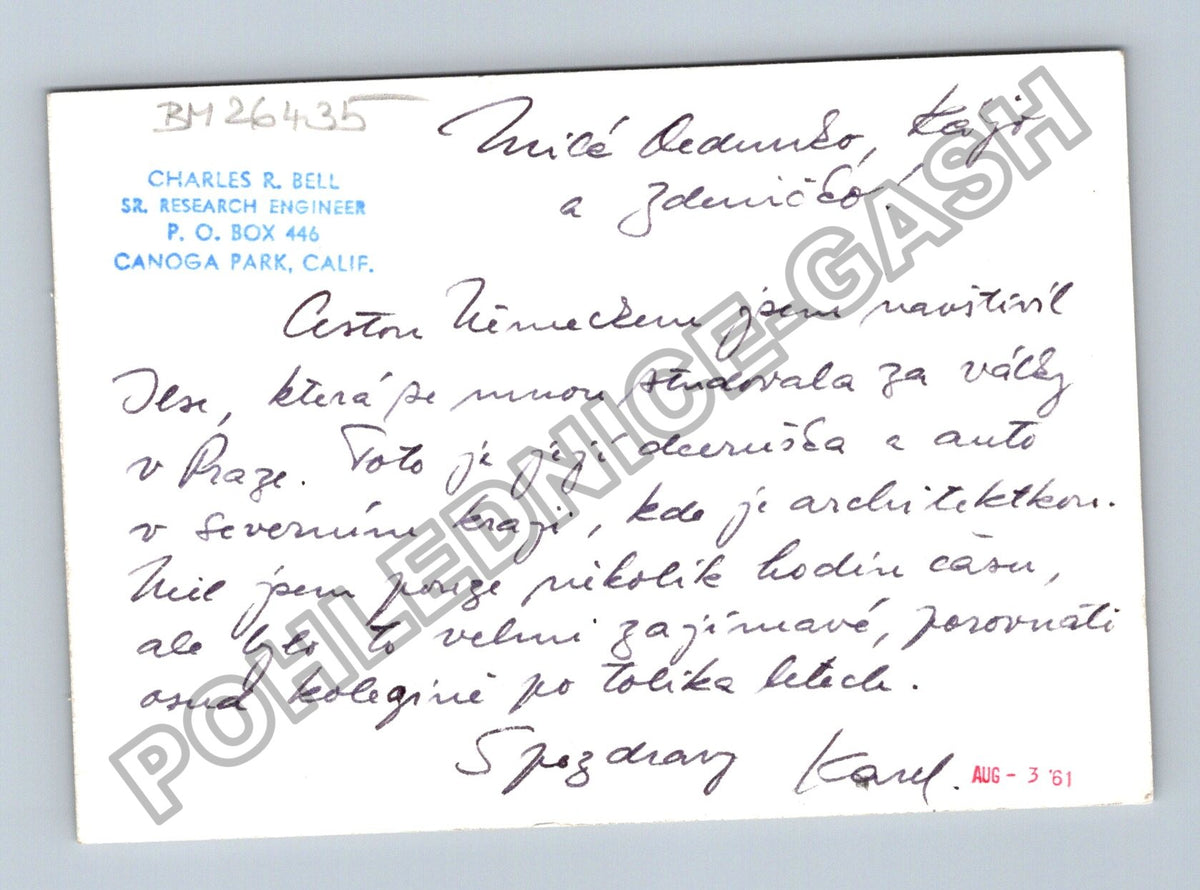 BM 26435
CHARLES R. BELL
SR. RESEARCH ENGINEER
P. O. BOX 446
CANOGA PARK, CALIF.
Milá Vedunko, Kájo
a Zdeničko!
Cestou Německem jsem navštívil
Ilse, která se mnou studovala za války
v Praze. Toto je její dceruška a auto
v severním kraji, kde je architektkou.
Měl jsem pouze několik hodin času,
ale bylo to velmi zajímavé, porovnati
osud kolegině po tolika letech.
S pozdravy Karel.
AUG - 3 '61
POHLEDNICE-GASH